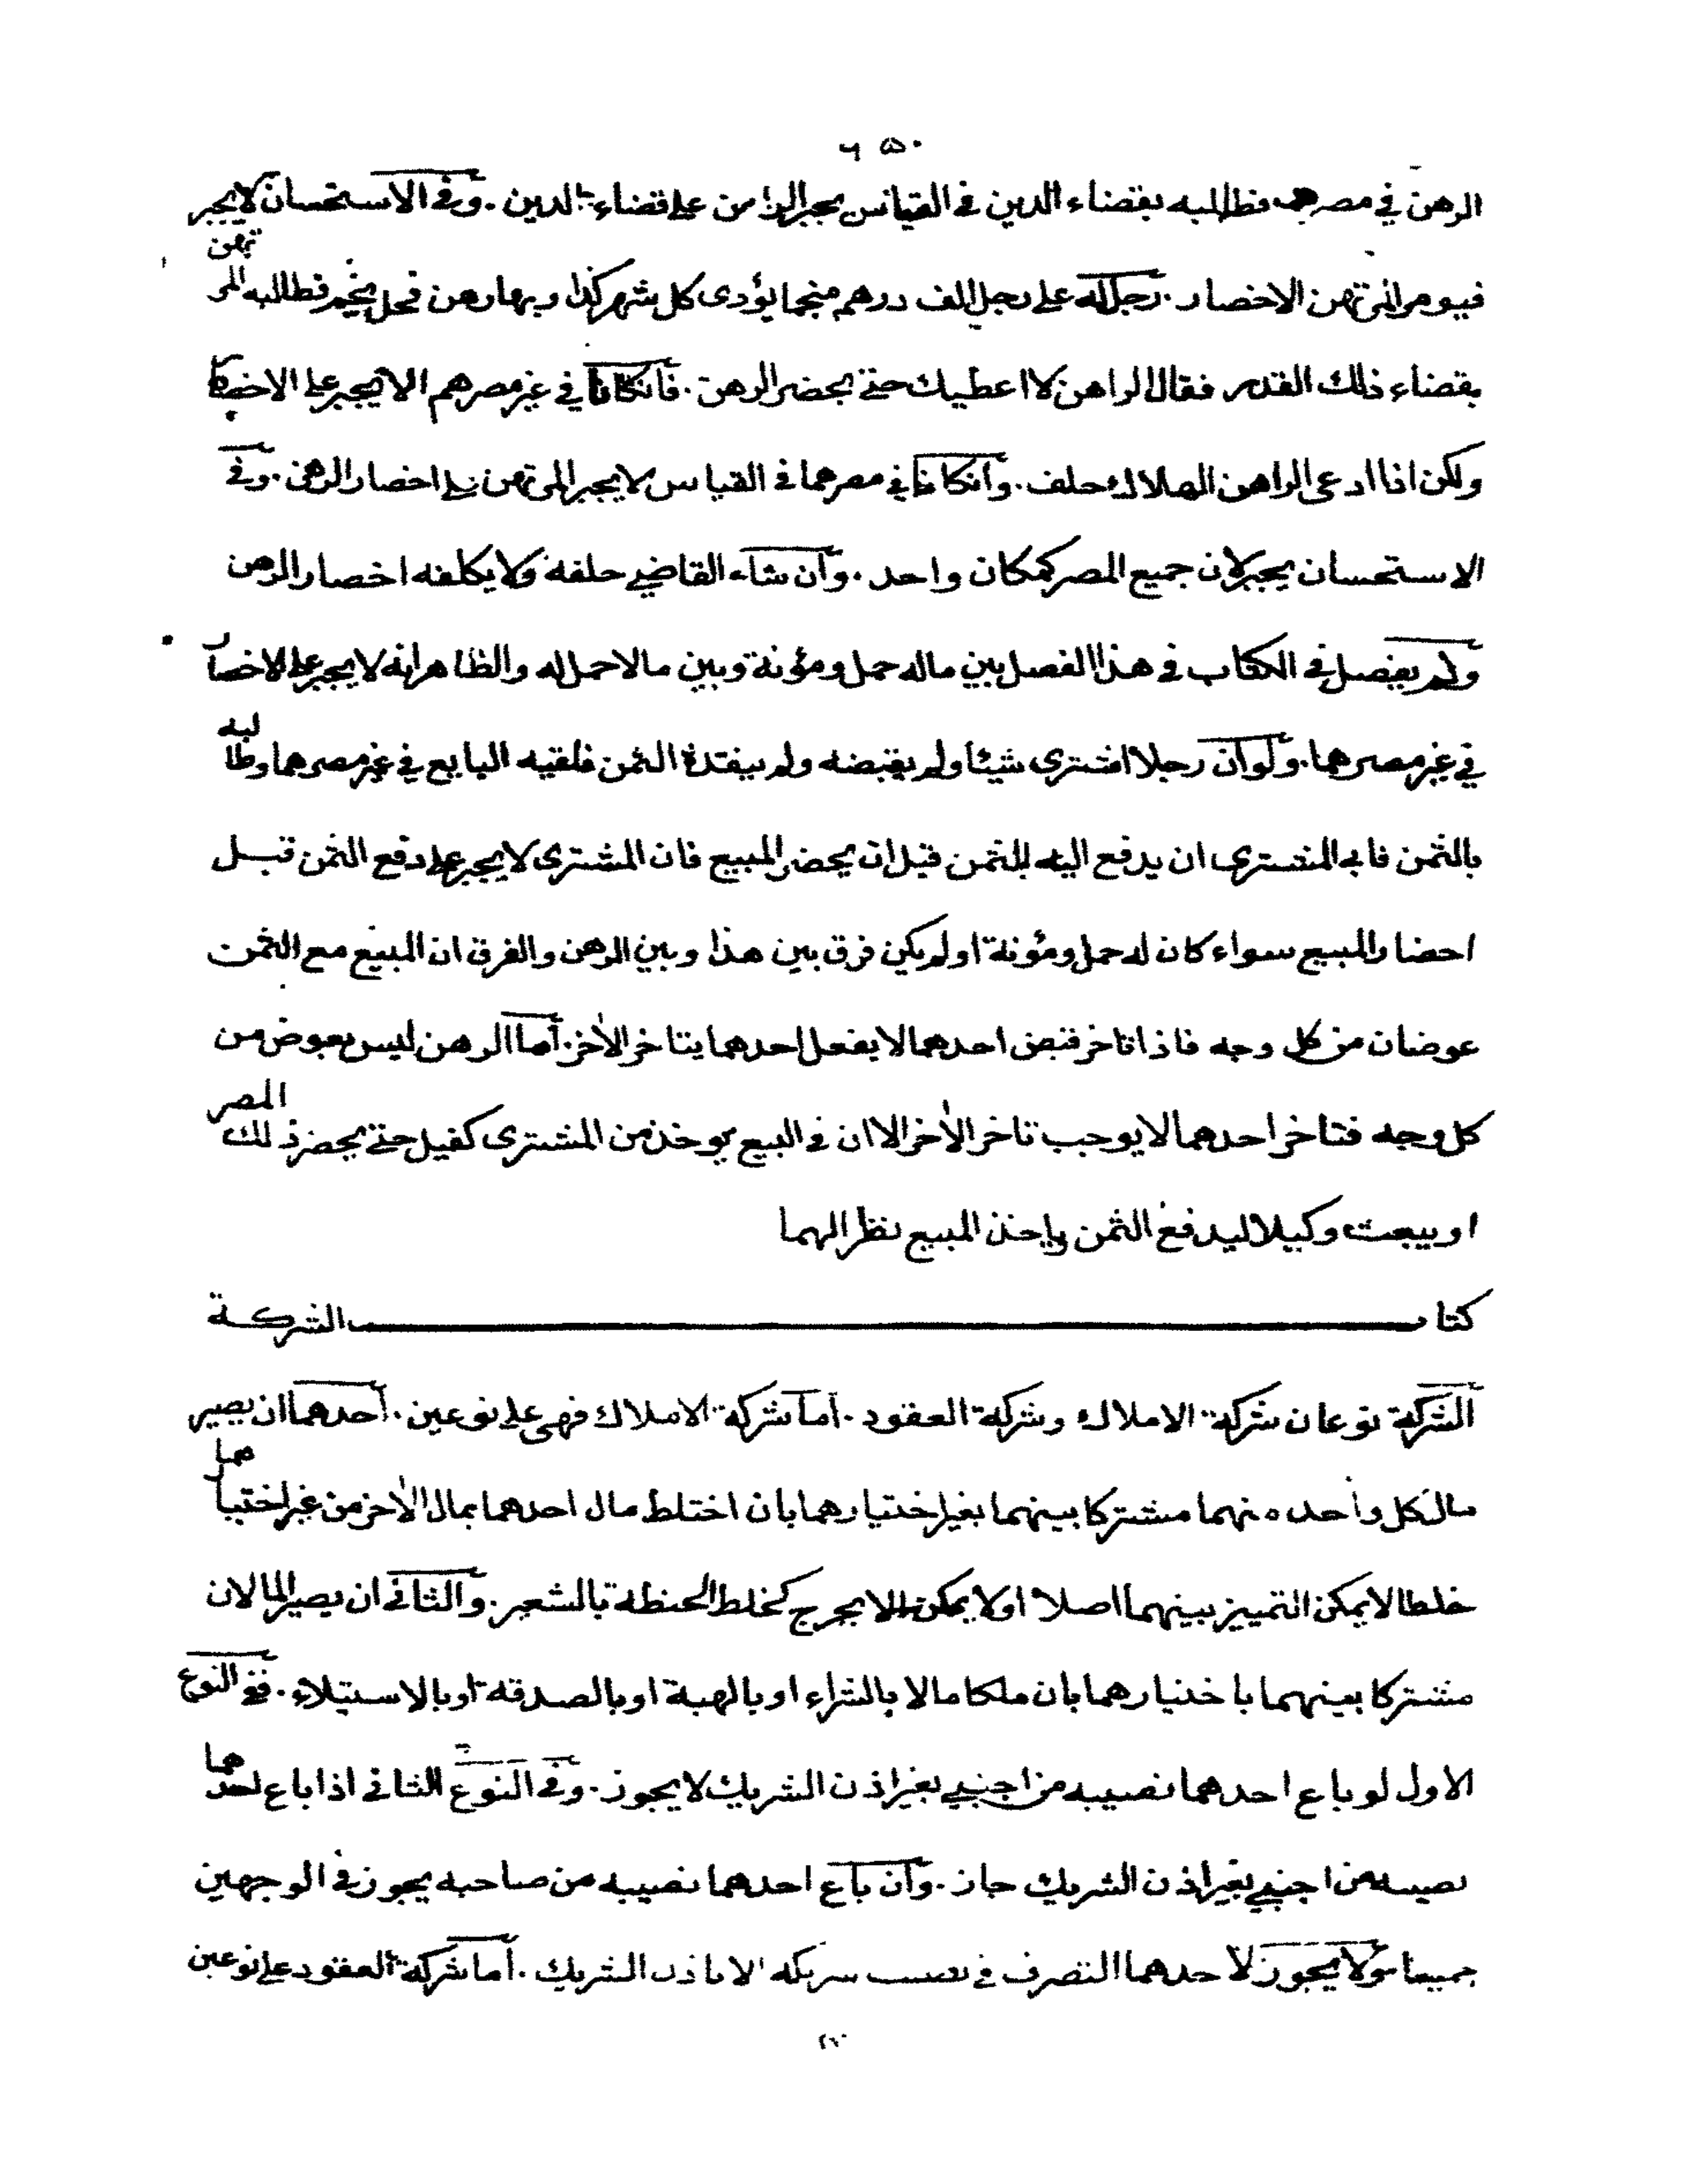 ٦٥٠
الرهن في مصرهما فطالبه بقضاء الدين في القياس يجبر الراهن على قضاء الدين . وفي الاستحسان لا يجبر
فيومر المرتهن الاحضار . رجل له على رجل الف درهم منجما يؤدى كل شهر كذا وبها رهن فحل نجم فطالبه المرتهن
بقضاء ذلك القدر فقال الراهن لا اعطيك حتى يحضر الرهن . فانكانا في غير مصرهم الا يجبر على الاحضار
ولكن اذا ادعى الراهن الهلاك حلف . وانكانا في مصرهما في القياس لا يجبر المرتهن على احضار الرهن . وفي
الاستحسان يجبر لان جميع المصر كمكان واحد . وان شاء القاضي حلفه ولا يكلفه احضار الرهن
ولم يفصل في الكتاب في هذا الفصل بين ماله حمل ومؤنة وبين مالا حمل له والظاهر انه لا يجبر على الاحضار
في غير مصرهما . ولو ان رجلا اشترى شيئا ولم يقبضه ولم ينقدة الثمن فلقيه البايع في غير مصرهما وطالبه
بالثمن فابى المشترى ان يدفع اليه الثمن قبل ان يحضر المبيع فان المشترى لا يجبر على دفع الثمن قبل
احضار المبيع سواء كان له حمل ومؤنة او لم يكن فرق بين هذا وبين الرهن والفرق ان المبيع مع الثمن
عوضان من كل وجه فاذا تاخر قبض احدهما لا يفعل احدهما يتاخر الآخر . اما الرهن ليس بعوض من
كل وجه فتاخر احدهما لا يوجب تاخر الآخر الا ان في البيع يوخذ من المشترى كفيل حتى يحضر ذلك المصر
او يبعث وكيلا ليدفع الثمن ياخذ المبيع نظرا لهما
كتاب الشركة
الشركة نوعان شركة الاملاك وشركة العقود . اما شركة الاملاك فهي على نوعين . احدهما ان يصير
مال كل واحد منهما مشتركا بينهما بغير اختيارهما بان اختلط مال احدهما بمال الآخر من غير اختيارهما
خلطا لا يمكن التمييز بينهما اصلا او لا يمكن الا بحرج كخلط الحنطة بالشعير . والثاني ان يصير المالان
مشتركا بينهما باختيارهما بان ملكا مالا بالشراء او بالهبة او بالصدقة او بالاستيلاء . ففي النوع
الاول لو باع احدهما نصيبه من اجنبي بغير اذن الشريك لا يجوز . وفي النوع الثاني اذا باع احدهما
نصيبه من اجنبي بغير اذن الشريك جاز . وان باع احدهما نصيبه من صاحبه يجوز في الوجهين
جميعا ولا يجوز لاحدهما التصرف في نصيب شريكه الا باذن الشريك . اما شركة العقود على نوعين